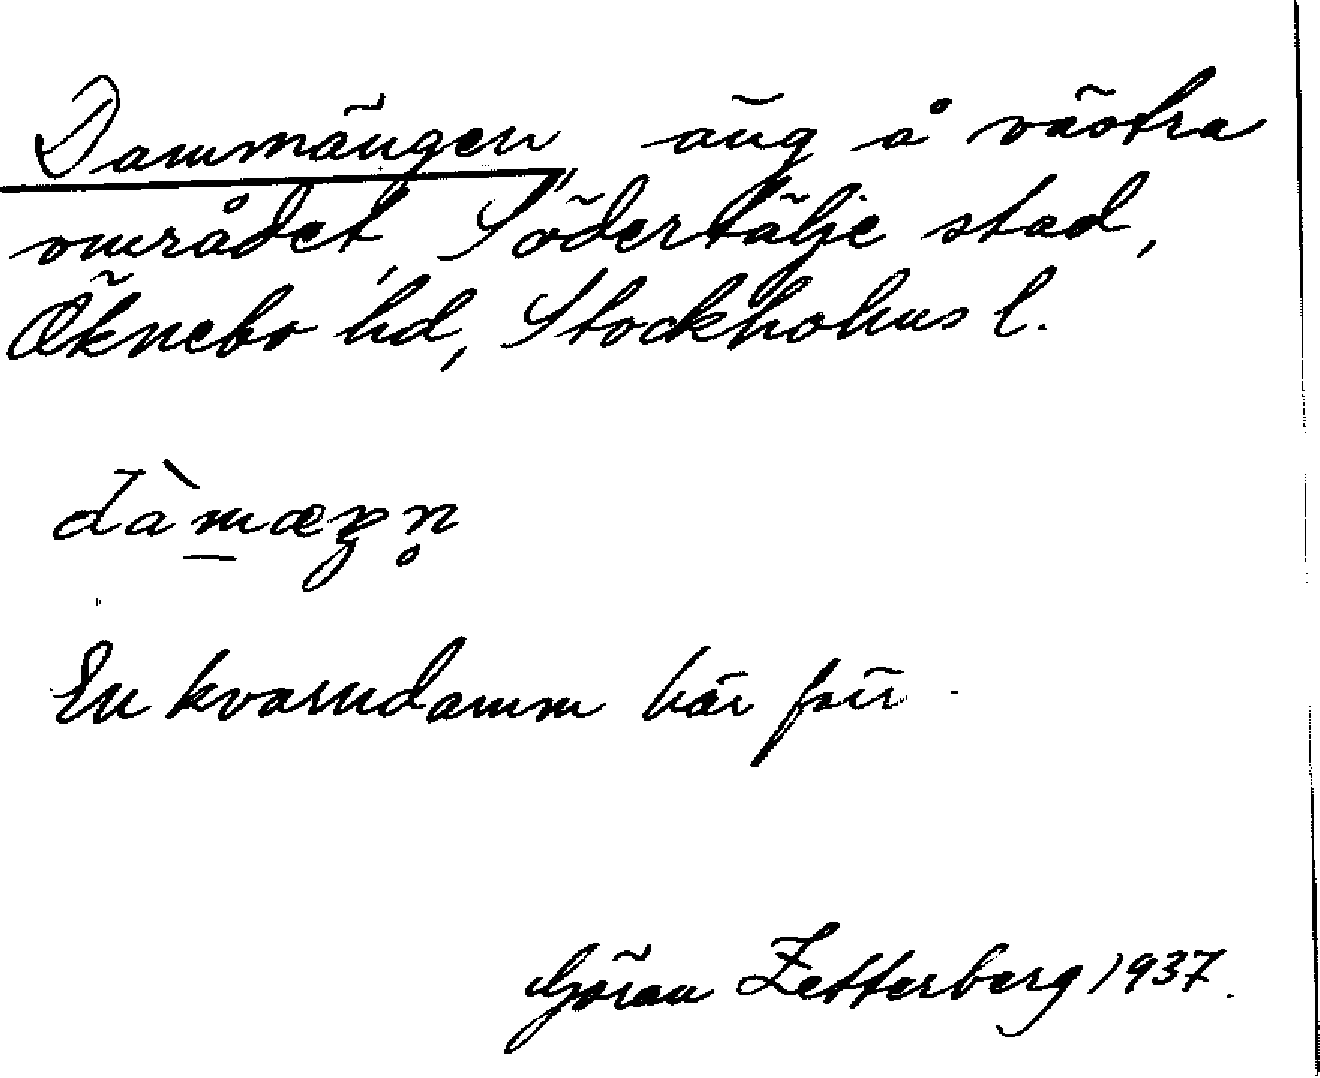 Dammängen, äng å västra
området, Södertälje stad,
Öknebo hd, Stockholms l.
dàm̲æŋn̥
En kvarndamm här förr.
Göran Zetterberg 1937.